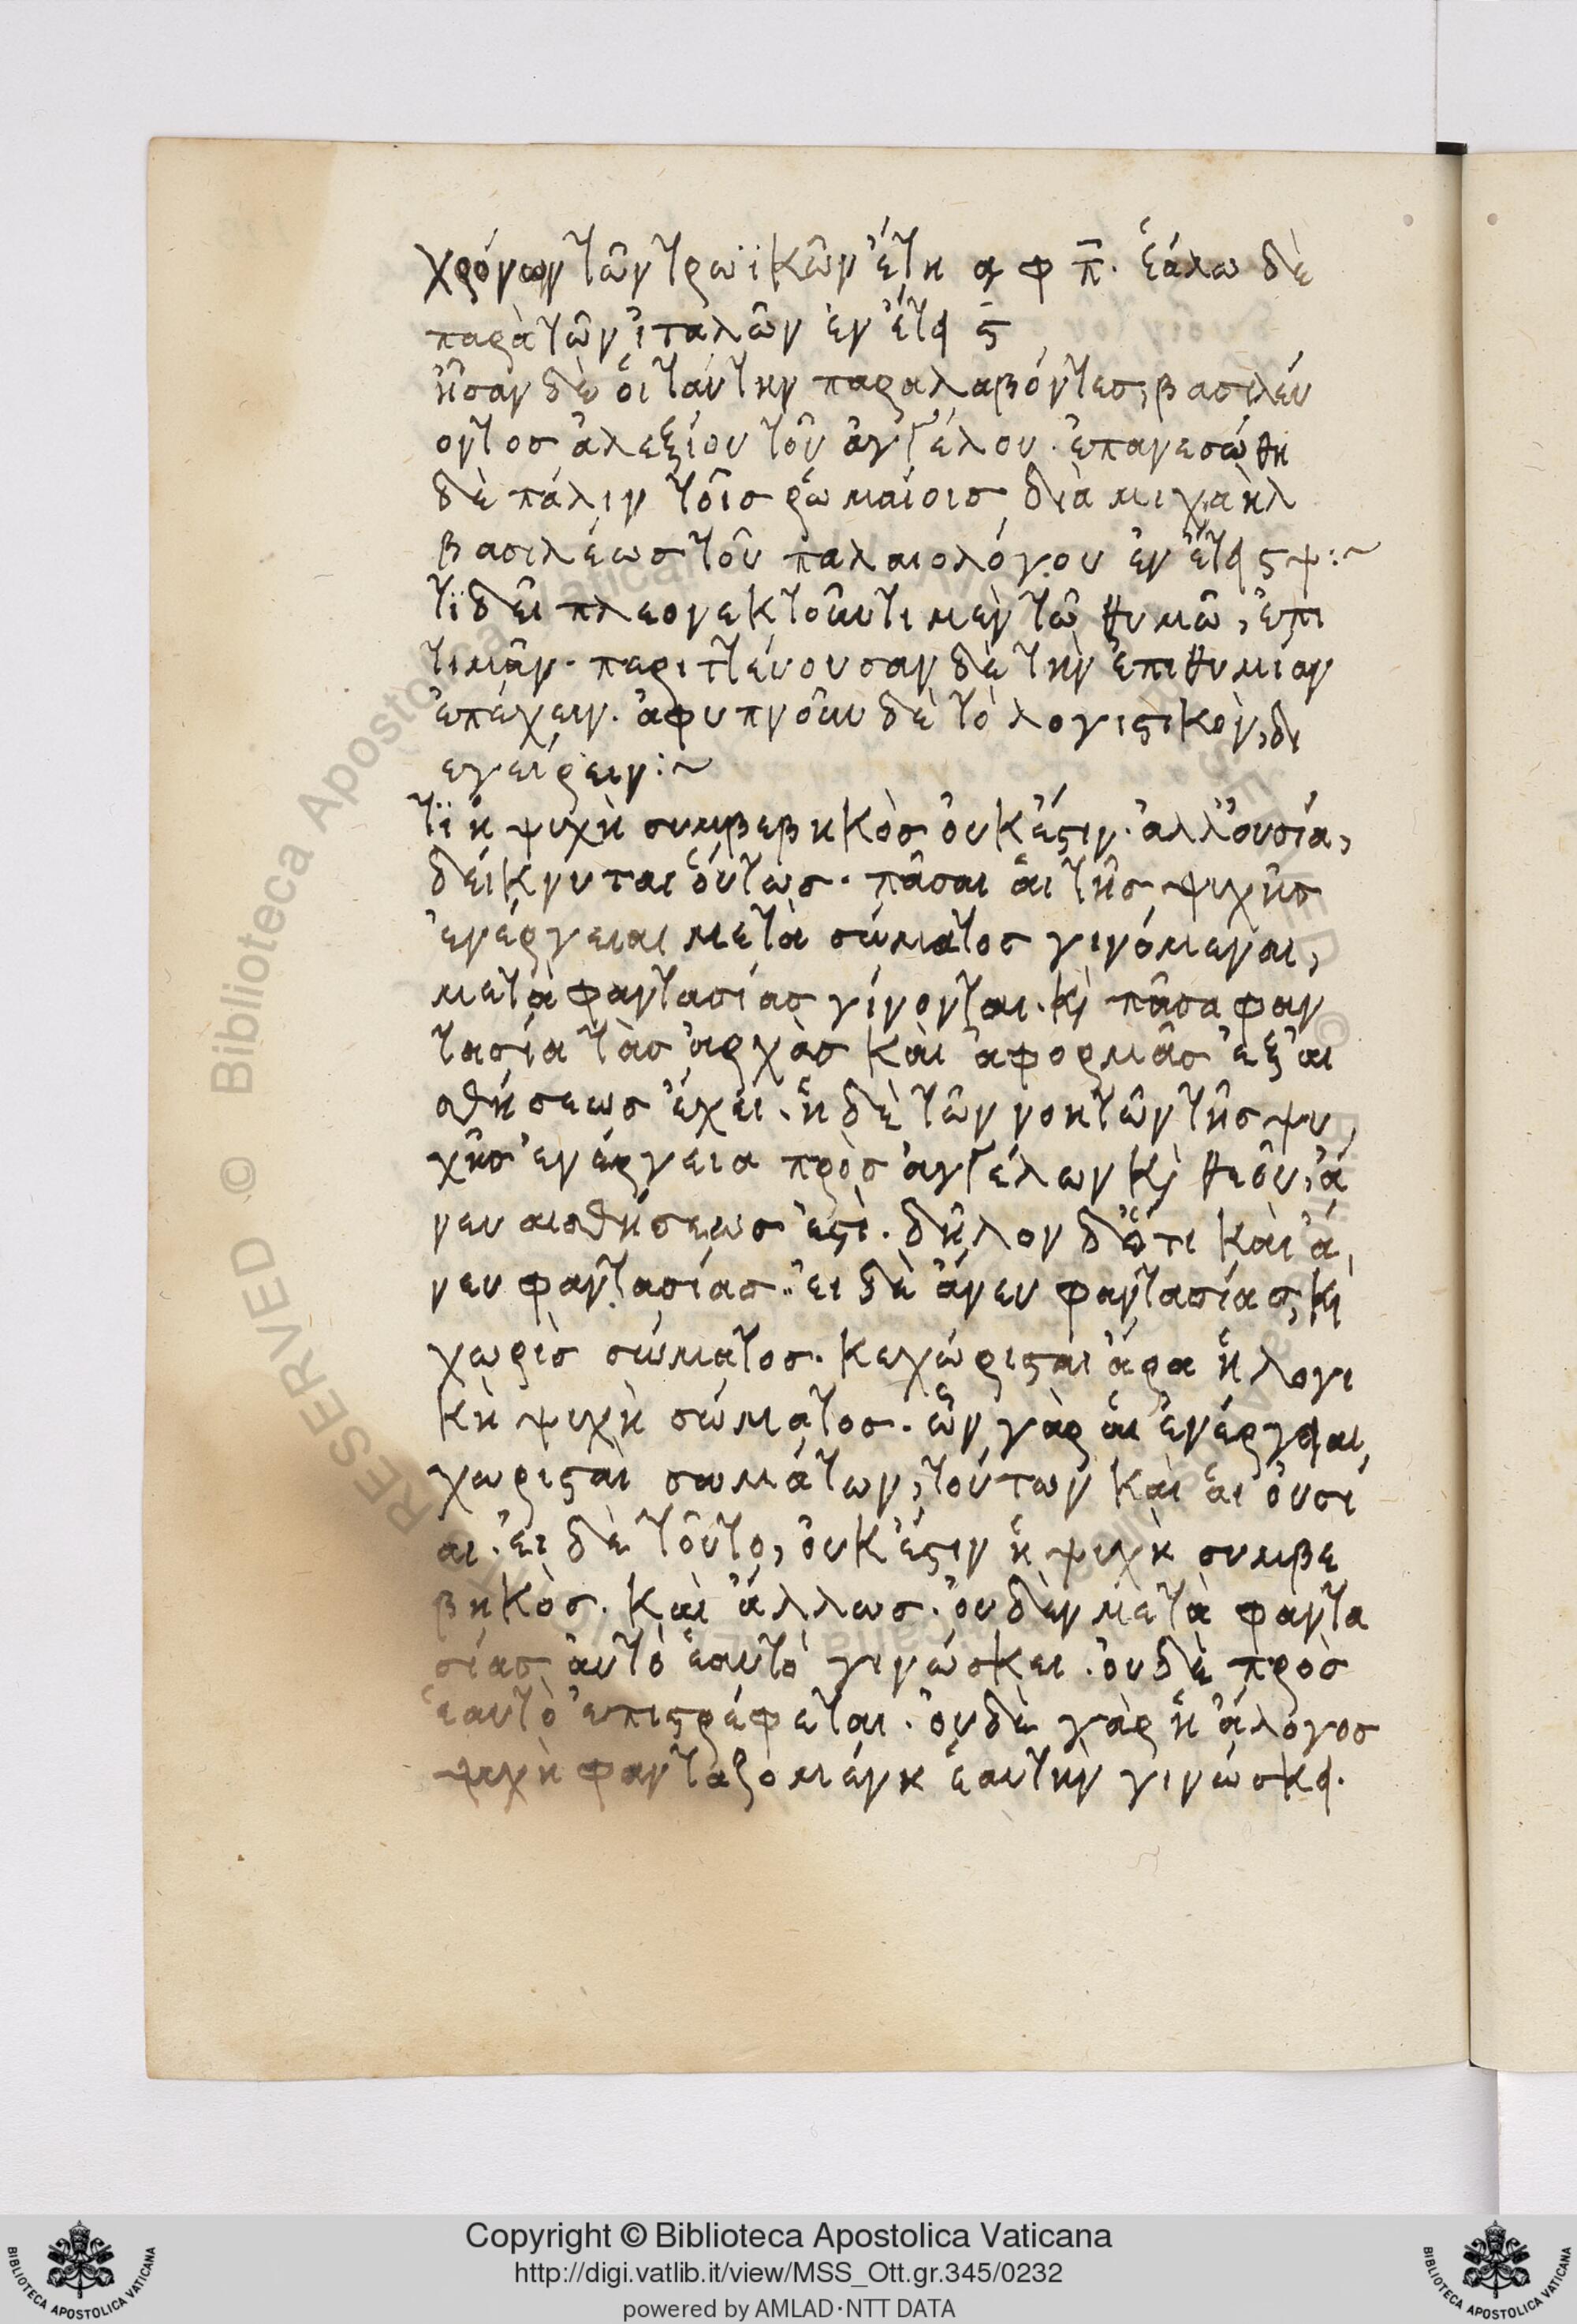 χρόνων τῶν τρωϊκῶν ἔτη α φ π̄. ἑάλω δὲ
παρὰ τῶν ἰταλῶν ἐν ἔτει ς̄
ἦσαν δὲ οἱ ταύτην παραλαβόντες, βασιλεύ
οντος ἀλεξίου τοῦ ἀγγέλου. ἐπανεσώθη
δὲ πάλιν τοῖς ῥωμαίοις διὰ μιχαὴλ
βασιλέως τοῦ παλαιολόγου ἐν ἔτει ςψ:~
τϊ δεῖ πλεονεκτοῦντι μὲν τῶ θυμῶ, ἐπι
τιμᾶν. περιττεύουσαν δὲ τὴν ἐπιθυμίαν
ἐπέχειν. ἀφυπνοῦν δὲ τὸ λογιστικὸν, δι
εγείρειν:~
τϊ ἡ ψυχὴ συμβεβηκὸς οὐκ ἔστιν. ἀλλ' οὐσία,
δείκνυται οὕτως. πᾶσαι αἱ τῆς ψυχῆς
ἐνέργειαι μετὰ σώματος γινόμεναι,
μετὰ φαντασίας γίνονται. κὶ πᾶσα φαν
τασία τὰς ἀρχὰς καὶ ἀφορμὰς ἐξ αι
σθήσεως ἔχει. ἡ δὲ τῶν νοητῶν τῆς ψυ
χῆς ἐνέργεια πρὸς ἀγγέλων κὶ θεοῦ, ἄ
νευ αισθήσεως ἐστὶ. δῆλον δ' ὅτι καὶ ἄ
νευ φαντασίας. εἰ δὲ ἄνευ φαντασίας, κὶ
χωρὶς σώματος. κεχώρισται ἄρα ἡ λογι
κὴ ψυχὴ σώματος. ὧν γὰρ αἱ ἐνέργειαι
χωρισταὶ σωμάτων, τούτων καὶ αἱ οὐσί
αι. εἰ δὲ τοῦτο, οὐκ ἔστιν ἡ ψυχὴ συμβε
βηκὸς. καὶ ἄλλως. οὐδὲν μετὰ φαντα
σίας αὐτὸ ἑαυτὸ γινώσκει. οὐδὲ πρὸς
ἑαυτὸ ἐπιστρέφεται. οὐδὲ γὰρ ἡ ἄλογος
ψυχὴ φανταζομένη ἑαυτὴν γινώσκει.
RESERVED © Biblioteca Apostolica Vaticana
Copyright © Biblioteca Apostolica Vaticana
http://digi.vatlib.it/view/MSS_Ott.gr.345/0232
powered by AMLAD·NTT DATA
BIBLIOTECA APOSTOLICA VATICANA
BIBLIOTECA APOSTOLICA VATICANA